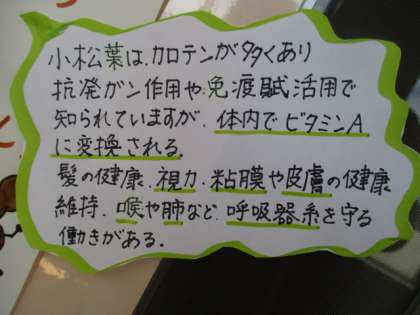 小松葉は、カロテンが多くあり
抗発ガン作用や、免疫賦活用で
知られていますが、体内でビタミンA
に変換される。
髪の健康、視力、粘膜や皮膚の健康
維持、喉や肺など、呼吸器系を守る
働きがある。